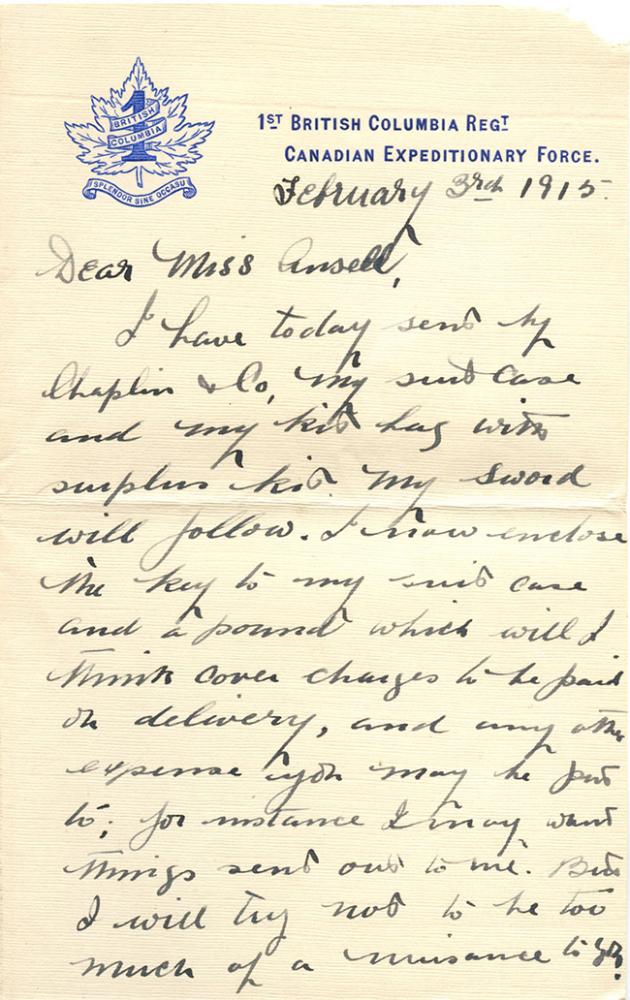 1
BRITISH
COLUMBIA
SPLENDOR SINE OCCASU
1ST BRITISH COLUMBIA REGT
CANADIAN EXPEDITIONARY FORCE.
February 3rd 1915.
Dear Miss Ansell,
I have today sent by
Chaplin & Co, my suit case
and my kit bag with
surplus kit. My sword
will follow. I now enclose
the key to my suit case
and a pound which will I
think cover charges to be paid
on delivery, and any other
expense you may be put
to; for instance I may want
things sent out to me. But
I will try not to be too
much of a nuisance to you.